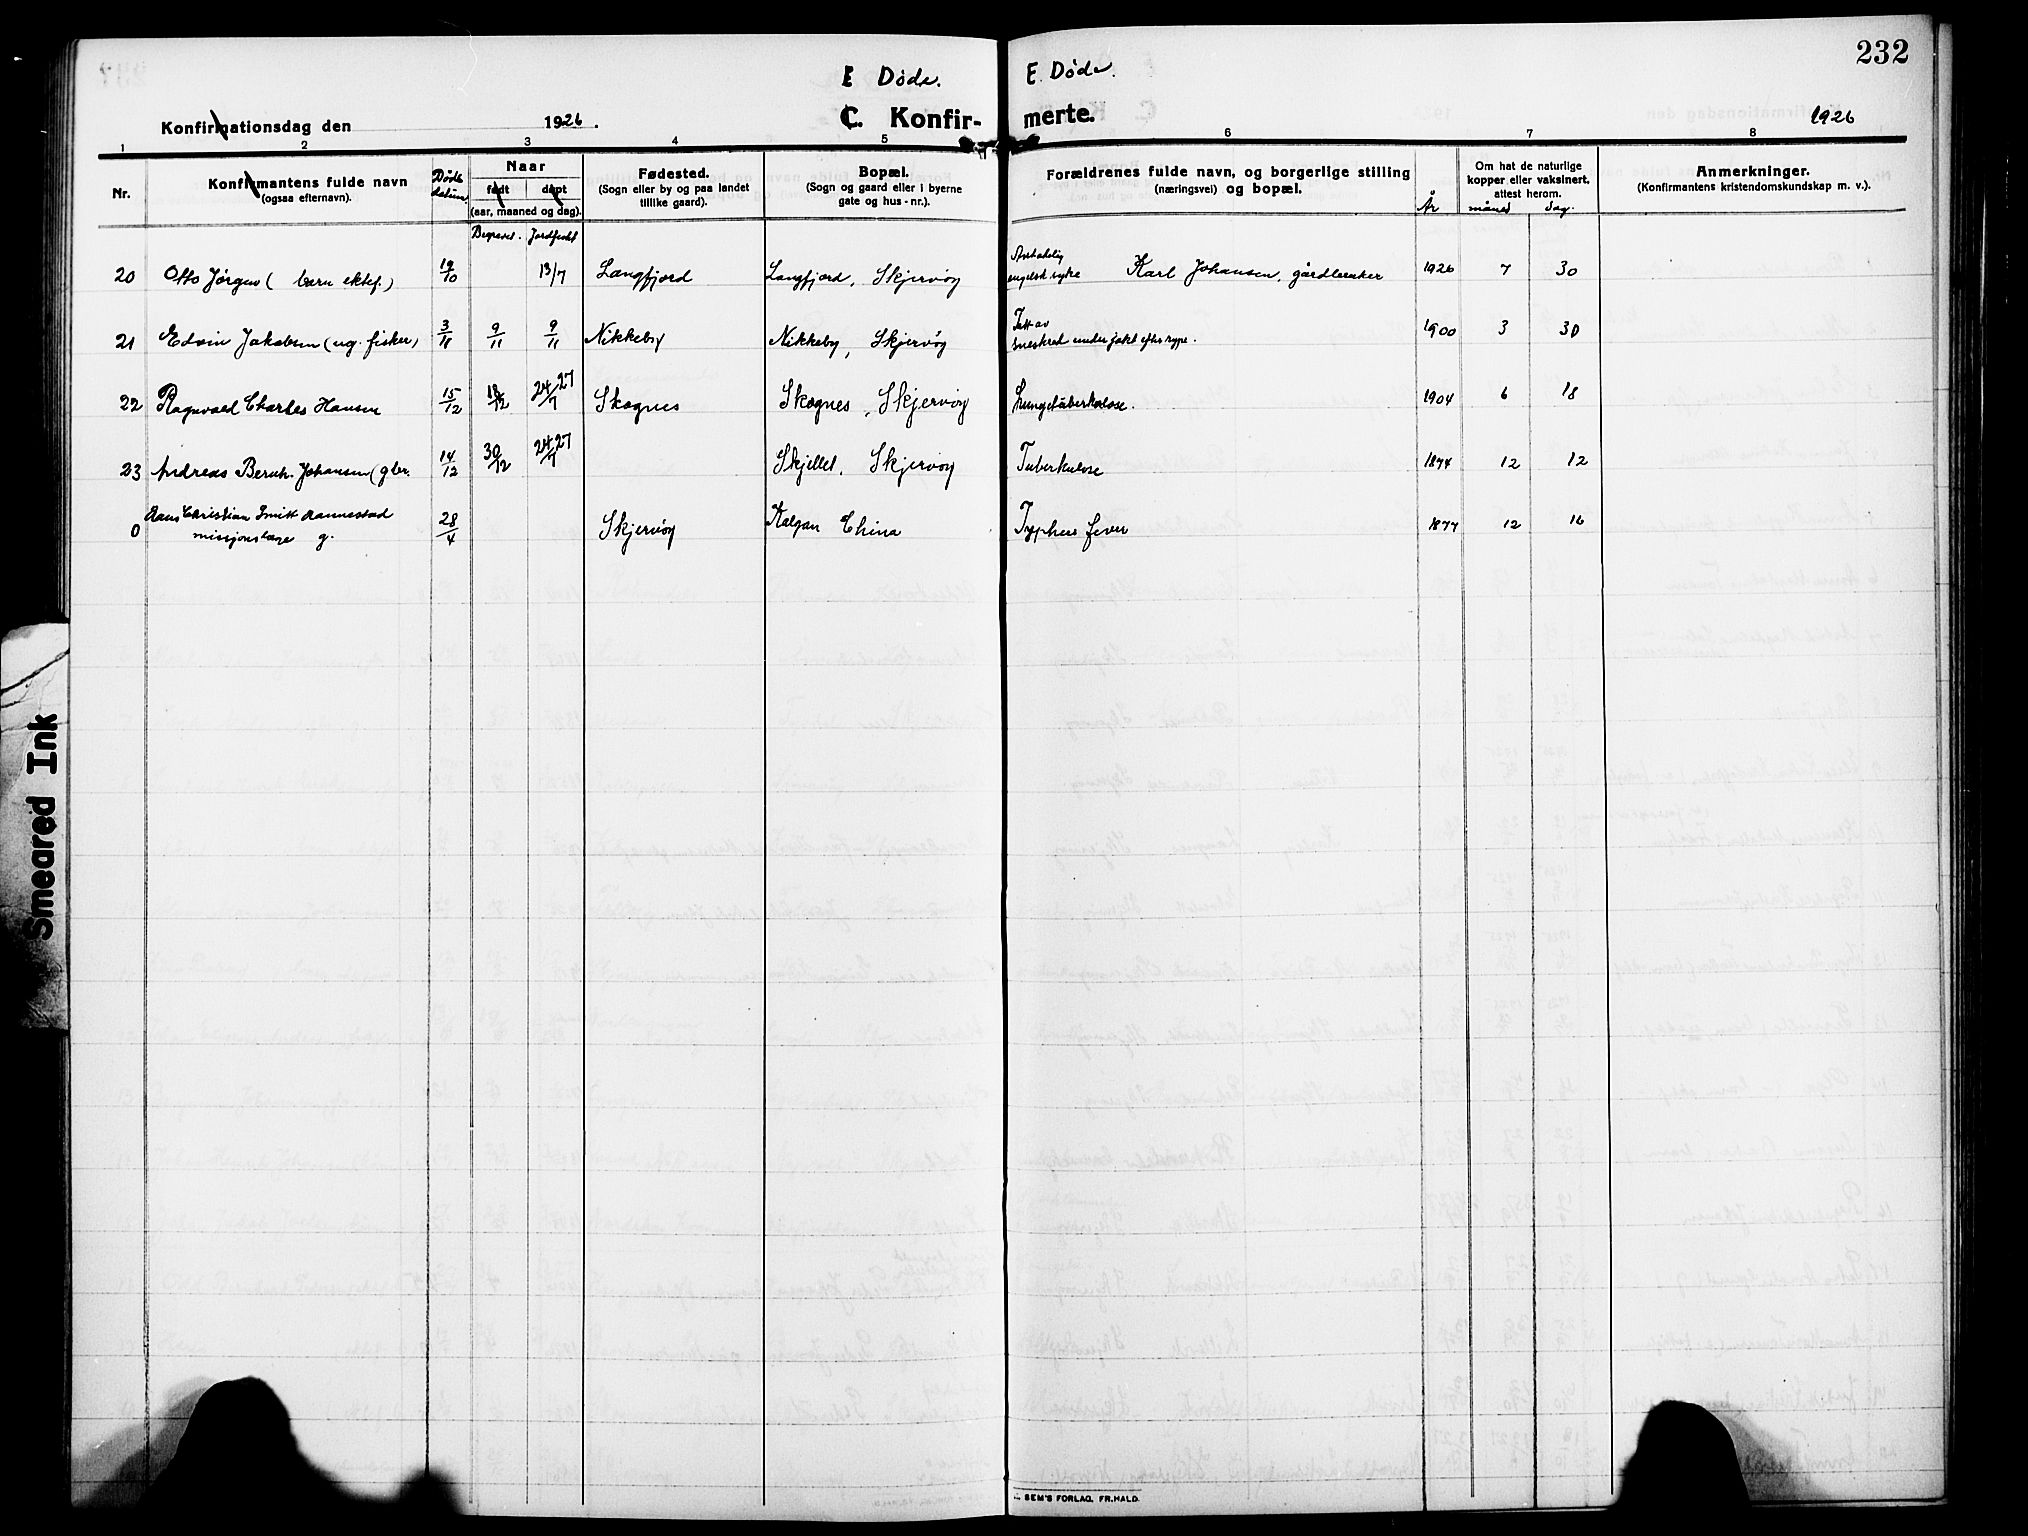 232
E Døde.
E. Døde.
Konfirmationsdag den 1926.
C. Konfir-
merte.
1926
1 2 3 4 5 6 7 8
Nr.
Konfirmantens fulde navn
(ogsaa efternavn).
Døds
datum.
Naar
født døpt
(aar, maaned og dag).
Begravet. Jordfestet
Fødested.
(Sogn eller by og paa landet
tillike gaard).
Bopæl.
(Sogn og gaard eller i byerne
gate og hus-nr.).
Forældrenes fulde navn, og borgerlige stilling
(næringsvei) og bopæl.
År
Om hat de naturlige
kopper eller vaksinert,
attest herom.
måned dag.
Anmerkninger.
(Konfirmantens kristendomskundskap m. v.).
20 Otto Jørgen (barn ektef.) 19/10 13/7 Langfjord Langfjord, Skjervøy
engelsk syke Karl Johansen, gårdbruker 1926 7 30
21 Edvin Jakobsen (ug. fisker) 3/11 9/11 9/11 Nikkeby Nikkeby, Skjervøy
Tatt av
sneskred under jakt efter rype. 1900 3 30
22 Ragnvald Charles Hansen 15/12 18/12 24/7 27 Skognes Skognes, Skjervøy Lungetuberkulose. 1904 6 18
23 Andreas Bernh. Johansen (gbr. 14/12 30/12 24/7 27 Skjellet, Skjervøy Tuberkulose 1874 12 12
0 Hans Christian Smitt Hannestad
misjonslæge g. 28/4 Skjervøy Kalgan China Typhus fever 1877 12 16
SEM'S FORLAG, FR.HALD.
Smeared Ink